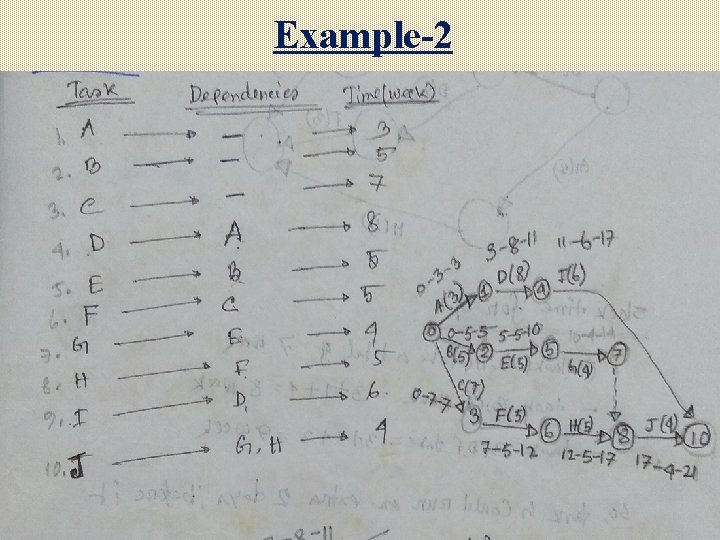 Example-2
Task Dependencies Time(week)
1. A → - → 3
2. B → - → 5
3. C → - → 7
4. D → A → 8
5. E → B → 5
6. F → C → 5
7. G → E → 4
8. H → F → 5
9. I → D → 6
10. J → G, H → 4
3-8-11 11-6-17
0-3-3 D(8) I(6)
A(3) 1 4
0 0-5-5 5-5-10
B(5) 2 E(5) 5 G(4) 7
C(7)
0-7-7 3 F(5) 6 H(5) 8 J(4) 10
7-5-12 12-5-17 17-4-21
-8-11